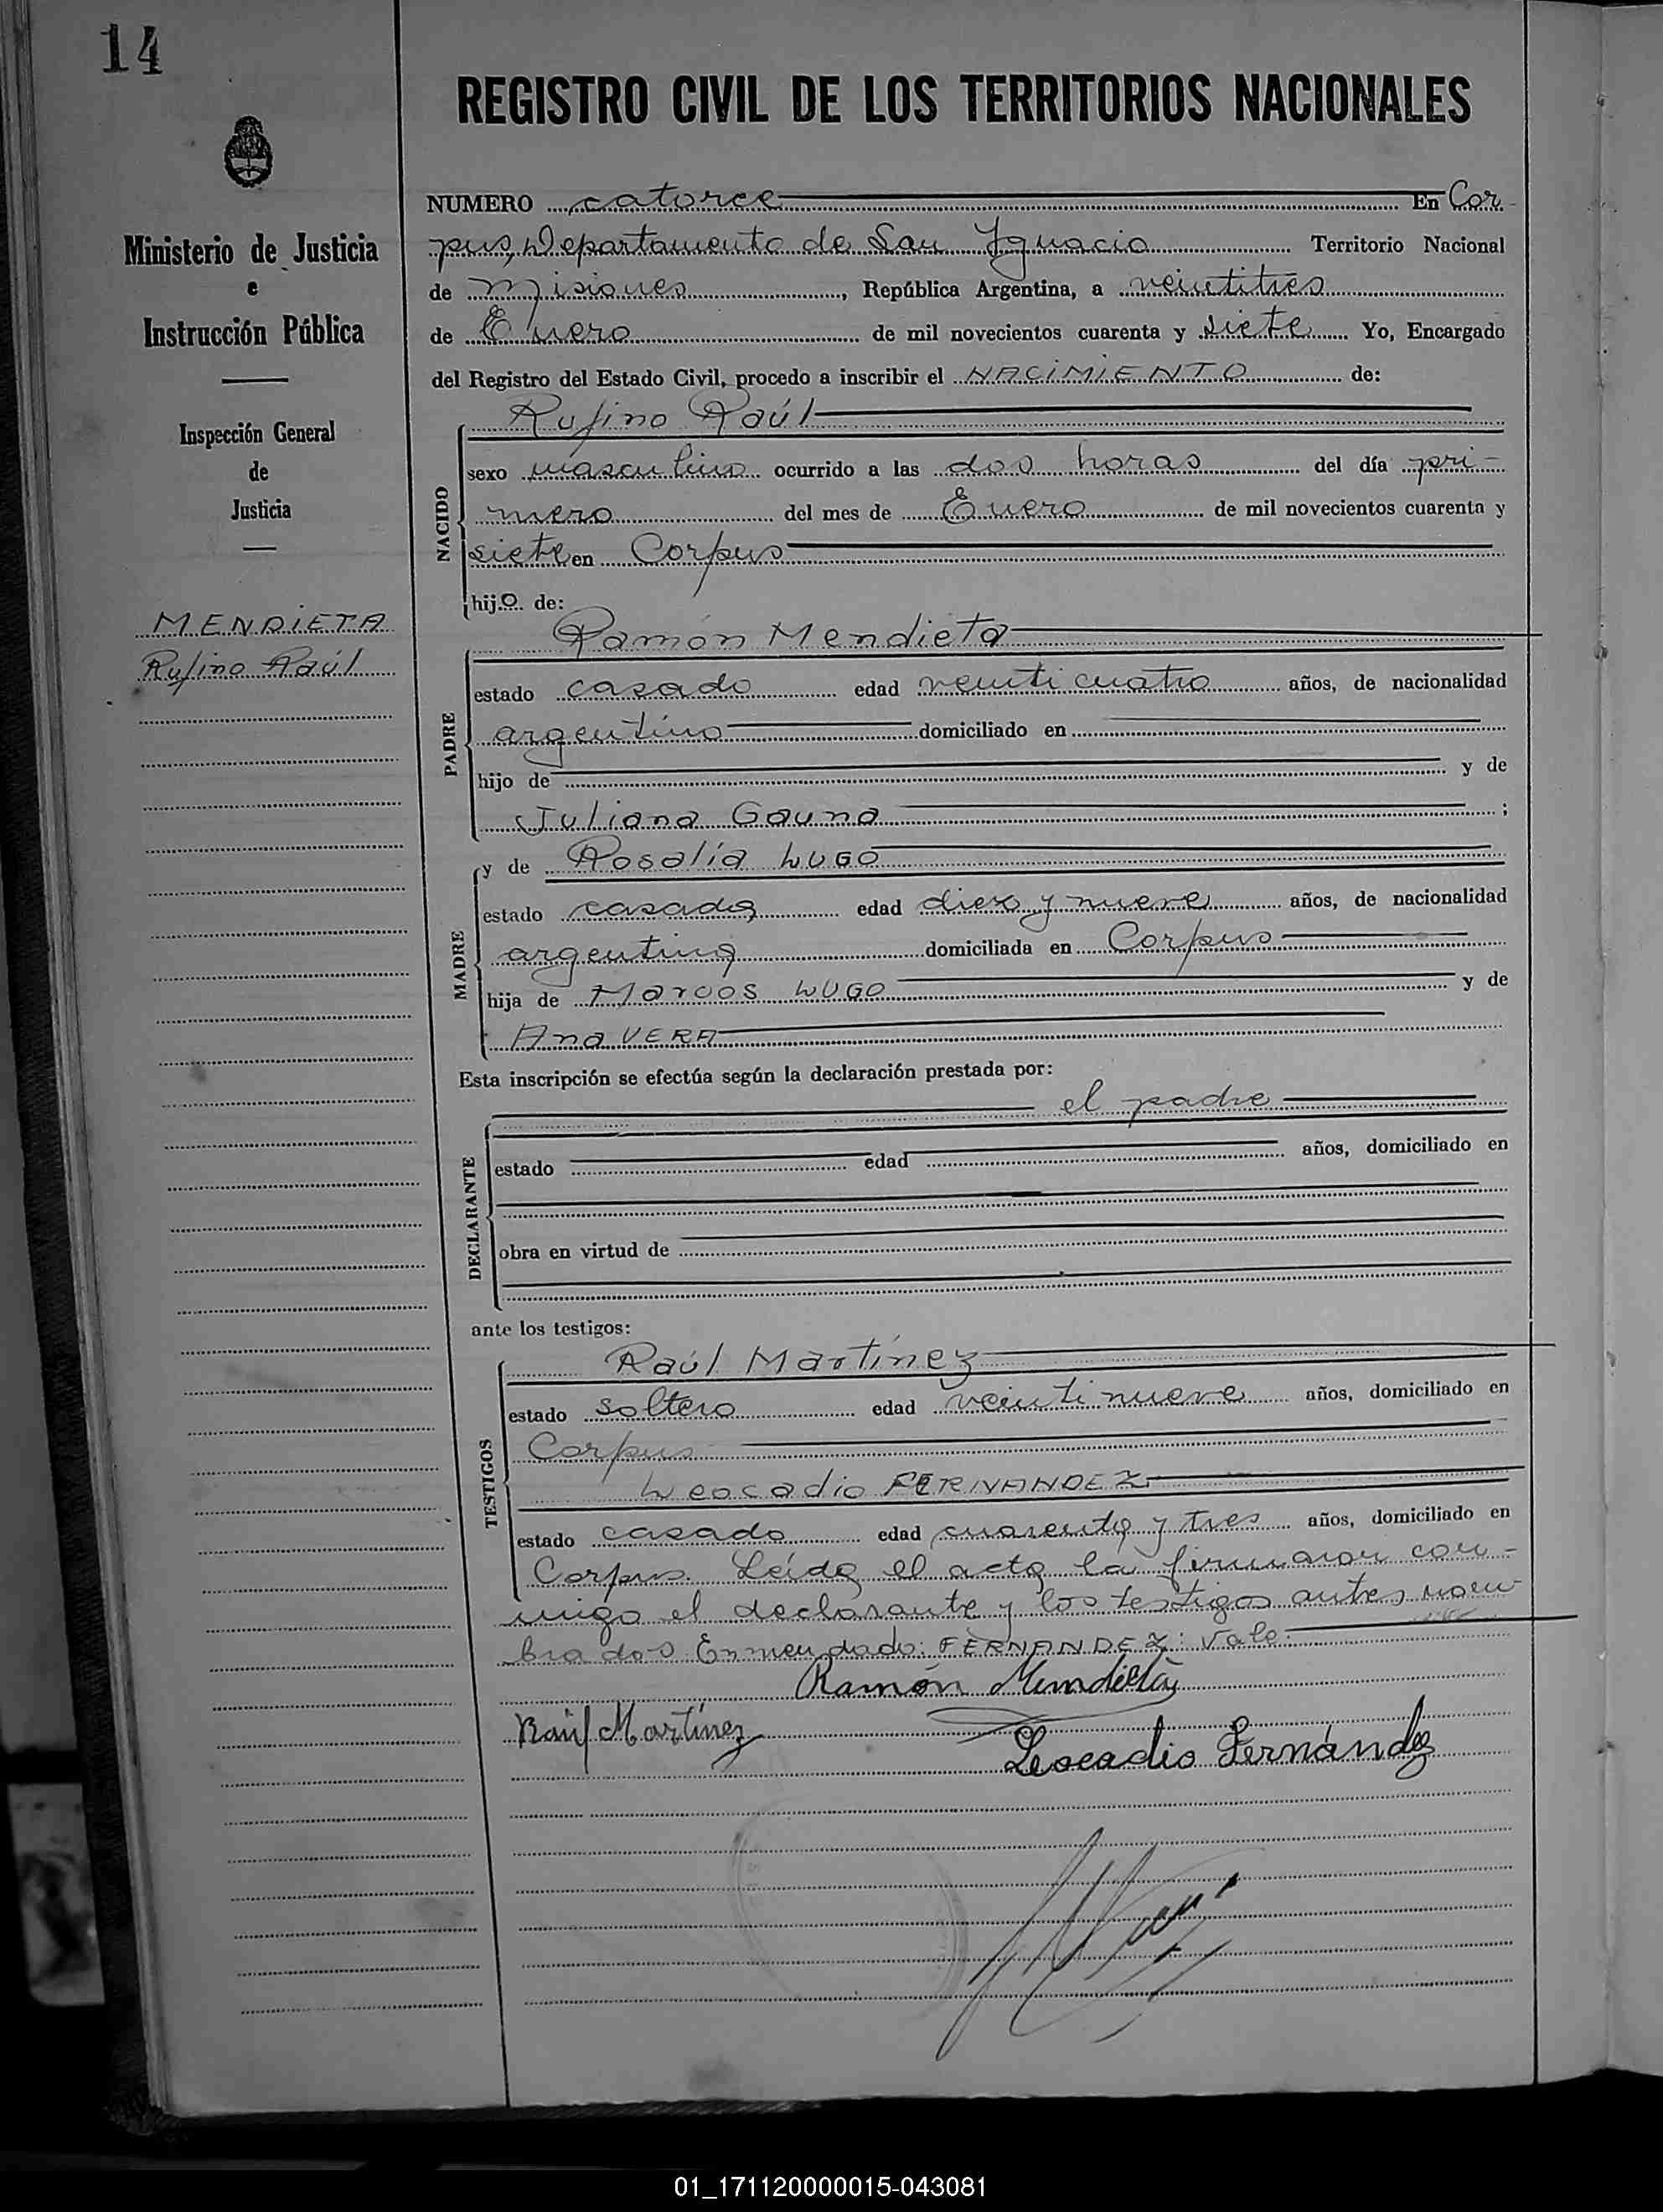 14
REGISTRO CIVIL DE LOS TERRITORIOS NACIONALES
Ministerio de Justicia
e
Instrucción Pública
Inspección General
de
Justicia
MENDIETA
Rufino Raúl
NUMERO catorce En Cor-
pus, Departamento de San Ygnacio Territorio Nacional
de Misiones, República Argentina, a veintitres
de Enero de mil novecientos cuarenta y siete Yo, Encargado
del Registro del Estado Civil, procedo a inscribir el NACIMIENTO de:
NACIDO
Rufino Raúl
sexo masculino ocurrido a las dos horas del día pri-
mero del mes de Enero de mil novecientos cuarenta y
siete en Corpus
hijo de:
PADRE
Ramón Mendieta
estado casado edad veinticuatro años, de nacionalidad
argentino domiciliado en
hijo de y de
Juliana Gauna ;
MADRE
y de Rosalía LUGO
estado casada edad diez y nueve años, de nacionalidad
argentina domiciliada en Corpus
hija de Marcos LUGO y de
Ana VERA
Esta inscripción se efectúa según la declaración prestada por:
el padre
DECLARANTE
estado edad años, domiciliado en
obra en virtud de
ante los testigos:
TESTIGOS
Raúl Martínez
estado soltero edad veintinueve años, domiciliado en
Corpus
Leocadio FERNANDEZ
estado casado edad cuarenta y tres años, domiciliado en
Corpus. Leída el acta la firmaron con-
migo el declarante y los testigos antes nom-
brados. Enmendado: FERNANDEZ: Vale.
Ramón Mendieta
Raúl Martínez
Leocadio Fernández
01_171120000015-043081